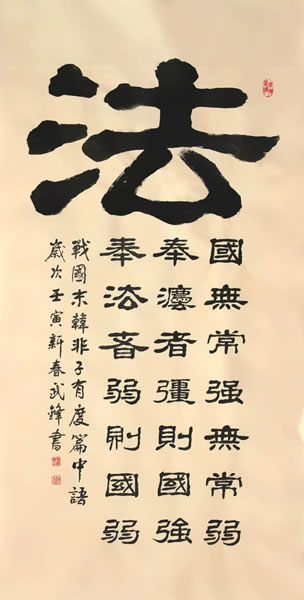 法
國無常强無常弱
奉灋者彊則國強
奉法者弱則國弱
戰國末韓非子有度篇中語
歲次壬寅新春武鋒書